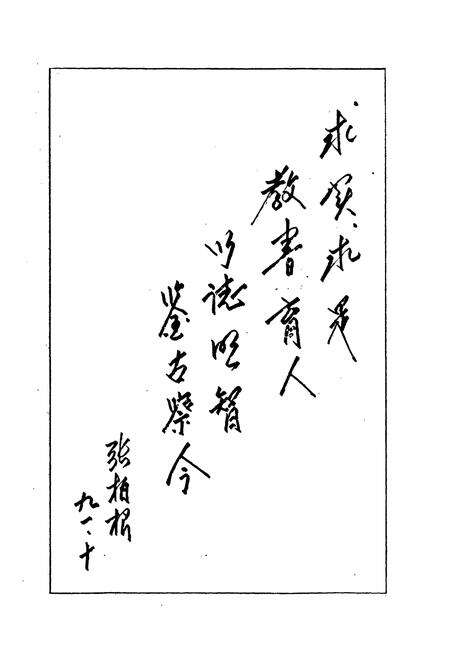 求实求是
教书育人
以志明智
鉴古察今
张柏根
九一、十